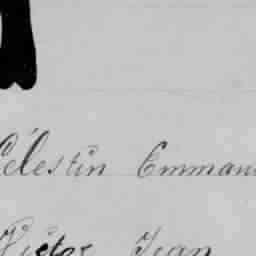 Célestin Emman
Victor Jean